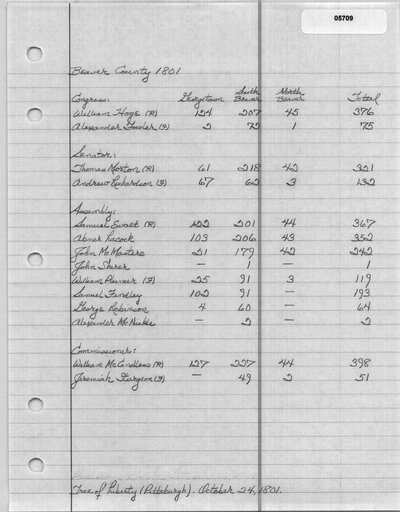 05709
Beaver County 1801
Congress: Georgetown South Beaver North Beaver Total
William Hoge (R) 124 207 45 376
Alexander Fowler (F) 2 72 1 75
Senator:
Thomas Morton (R) 61 218 42 321
Andrew Richardson (F) 67 62 3 132
Assembly:
Samuel Ewalt (R) 122 201 44 367
Abner Lacock 103 206 43 352
John McMasters 21 179 42 242
John Sherer — 1 — 1
William Penner (F) 25 91 3 119
Samuel Findley 102 91 — 193
George Robinson 4 60 — 64
Alexander McNickle — 2 — 2
Commissioner:
William McCandless (R) 127 227 44 398
Jeremiah Sturgeon (F) — 49 2 51
Tree of Liberty (Pittsburgh). October 24, 1801.